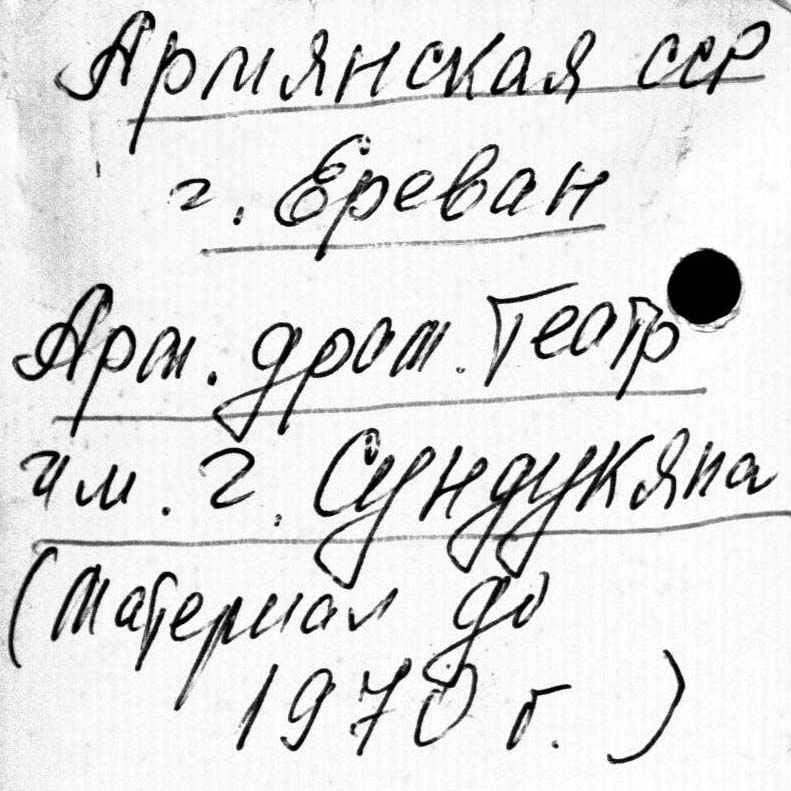 Армянская ССР
г. Ереван
Арм. драм. Театр
им. Г. Сундукяна
(материал до
1970 г.)